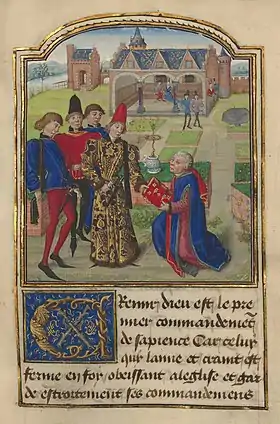 Cremir dieu est le pre
mier commandemẽt
de sapience Car celuy
qui laime et craint est
ferme en foy, obeissant aleglise et gar
de estroitement ses commandemens